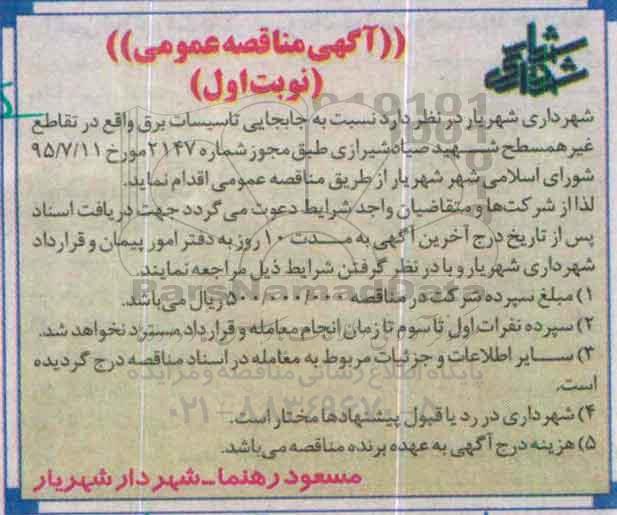 شهرداری شهریار
((آگهی مناقصه عمومی))
(نوبت اول)
شهرداری شهریار در نظر دارد نسبت به جابجایی تاسیسات برق واقع در تقاطع
غیر همسطح شهید صیاد شیرازی طبق مجوز شماره ۲۱۴۷ مورخ ۹۵/۷/۱۱
شورای اسلامی شهر شهریار از طریق مناقصه عمومی اقدام نماید.
لذا از شرکت‌ها و متقاضیان واجد شرایط دعوت می گردد جهت دریافت اسناد
پس از تاریخ درج آخرین آگهی به مدت ۱۰ روز به دفتر امور پیمان و قرارداد
شهرداری شهریار و با در نظر گرفتن شرایط ذیل مراجعه نمایند.
۱) مبلغ سپرده شرکت در مناقصه ۵۰۰/۰۰۰/۰۰۰ ریال می‌باشد.
۲) سپرده نفرات اول تا سوم تا زمان انجام معامله و قرارداد مسترد نخواهد شد.
۳) سایر اطلاعات و جزئیات مربوط به معامله در اسناد مناقصه درج گردیده
است.
۴) شهرداری در رد یا قبول پیشنهادها مختار است.
۵) هزینه درج آگهی به عهده برنده مناقصه می‌باشد.
مسعود رهنما - شهردار شهریار
ParsNamadData
پایگاه اطلاع رسانی مناقصه و مزایده